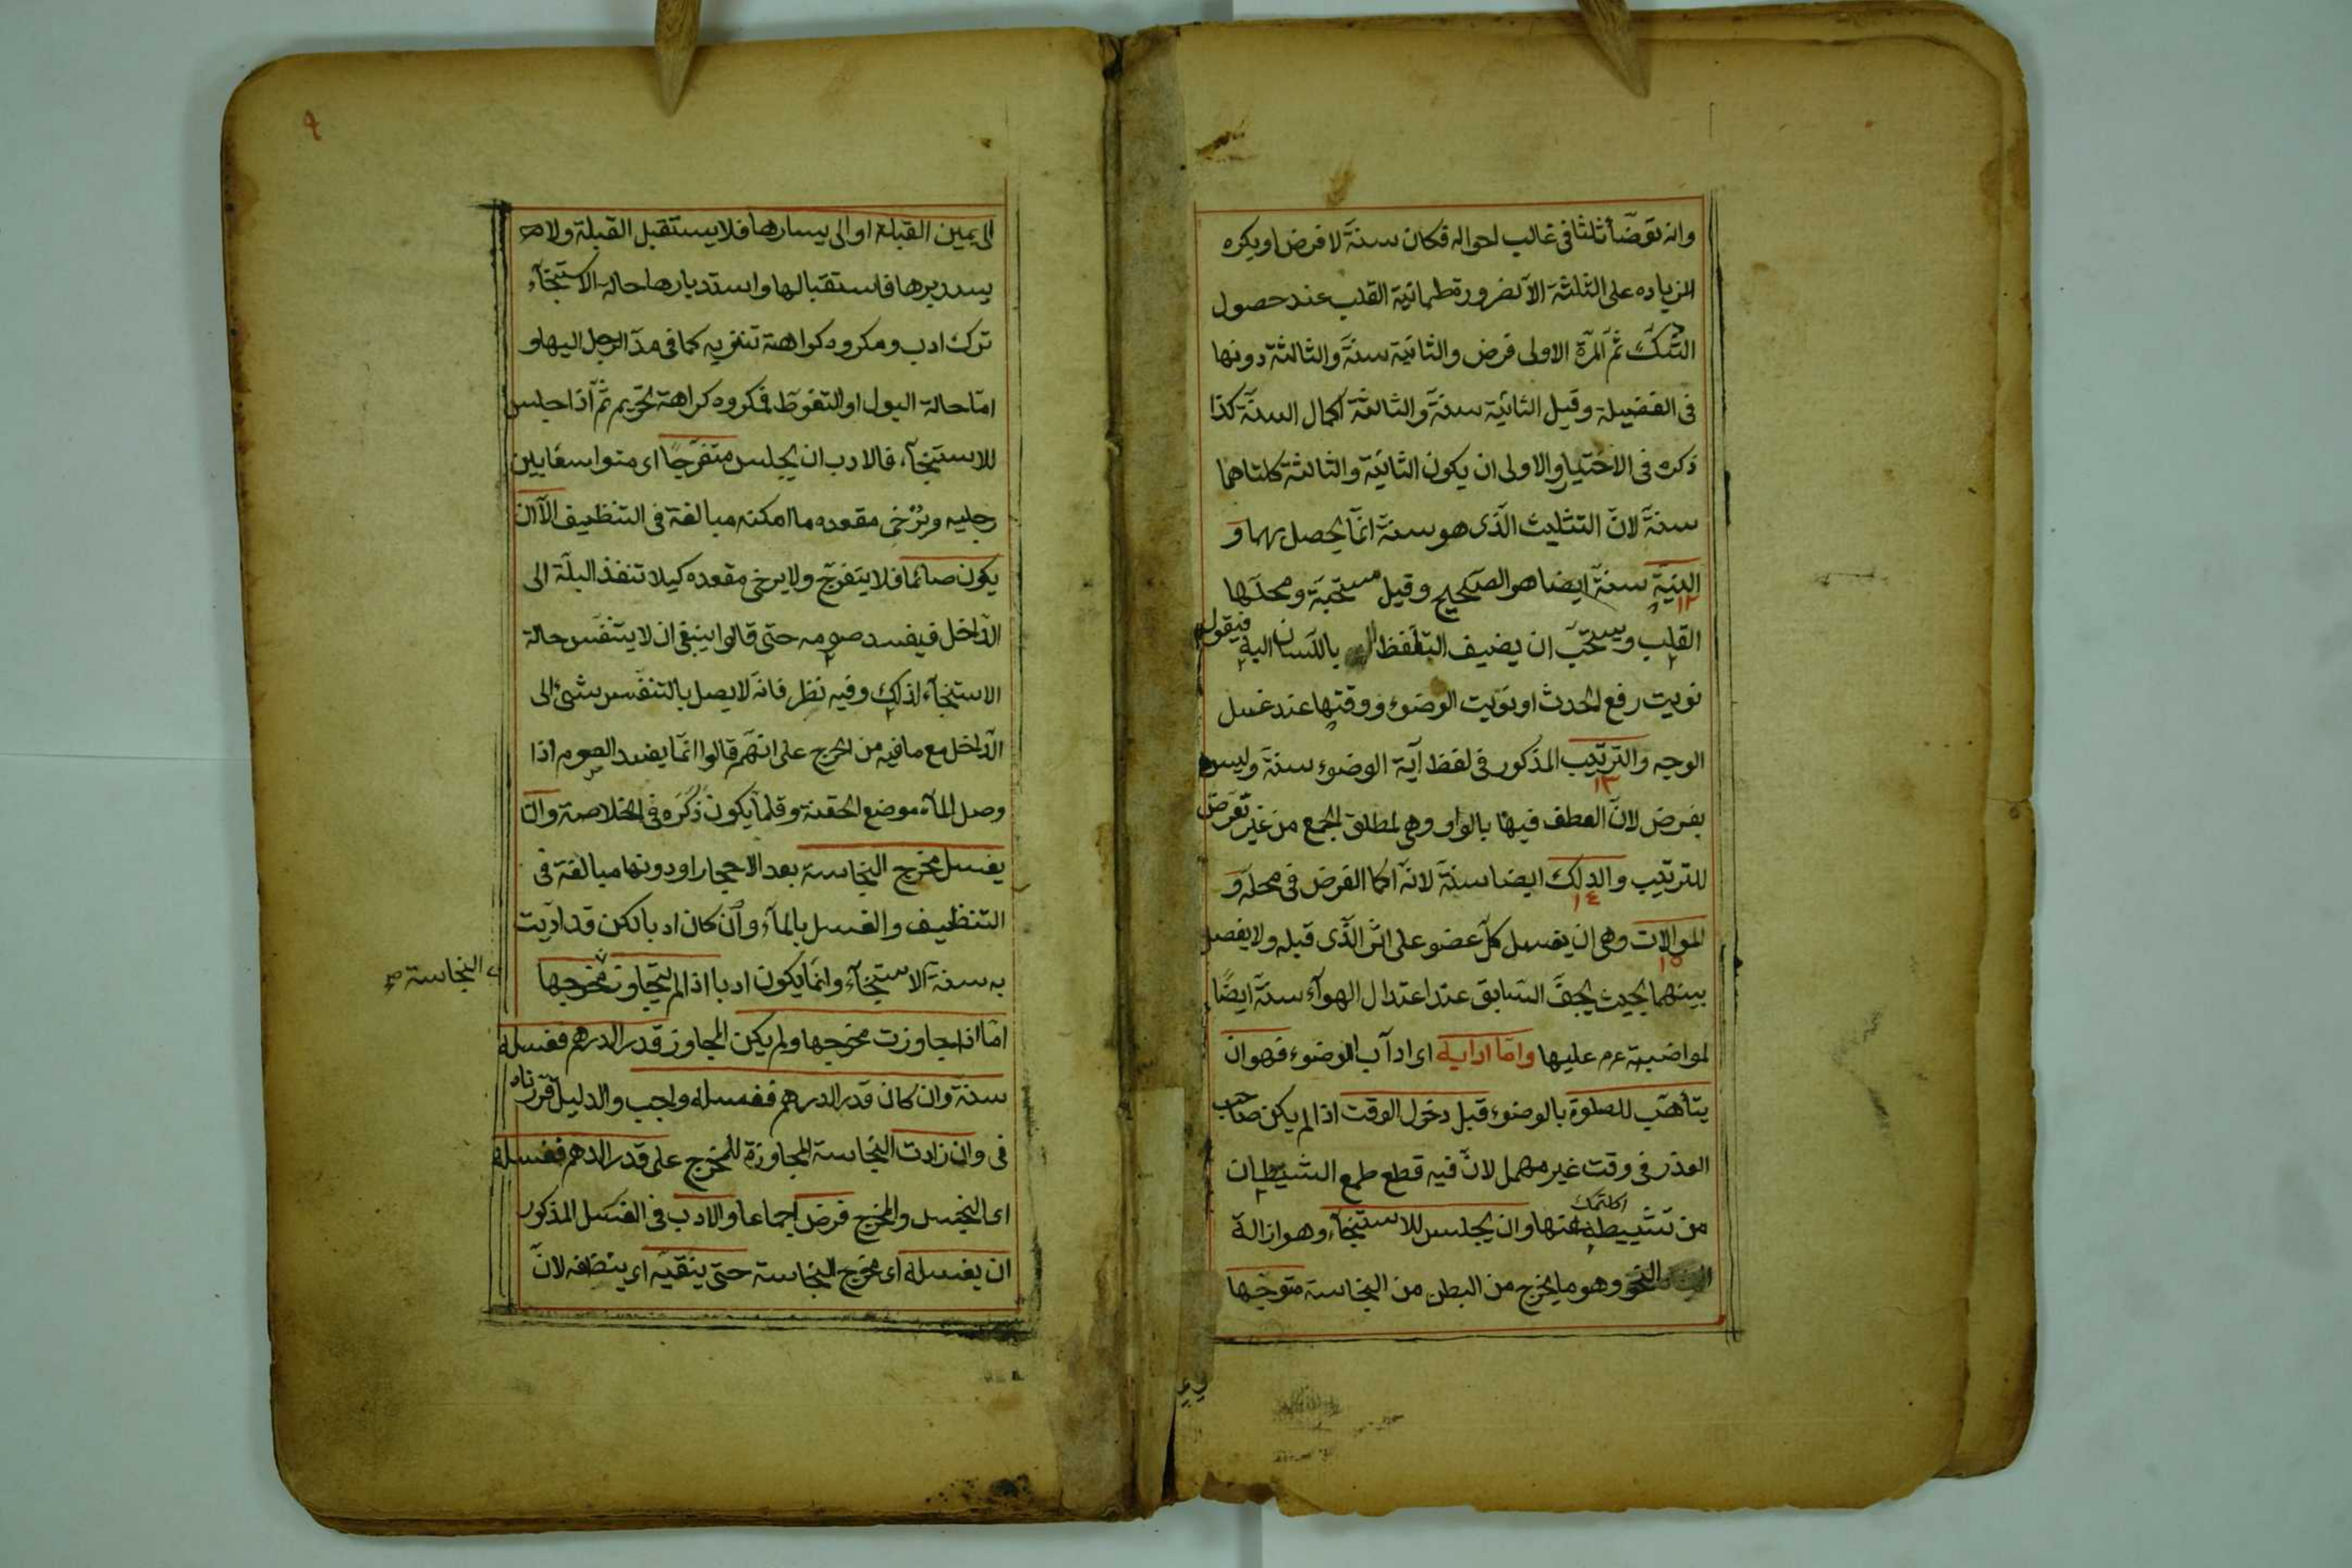 وانه توضأ ثلثا فى غالب احواله فكان سنة لا فرض او يكره
الزياده على الثلثة الا لضرورة طمانية القلب عند حصول
الشك ثم المرة الاولى فرض والثانية سنة والثالثة دونها
فى الفضيلة وقيل الثانية سنة والثالثة اكمال السنة كذا
ذكره فى الاختيار والاولى ان يكون الثانية والثالثة كلتاهما
سنة لان التثليث الذى هو سنة انما يحصل بهما و
النية سنة ايضا هو الصحيح وقيل مستحبة ومحلها
١٢
القلب ويستحب ان يضيف التلفظ باللسان اليه فيقول
نويت رفع الحدث او نويت الوضوء ووقتها عند غسل
الوجه والترتيب المذكور فى لفظ آية الوضوء سنة وليس
١٣
بفرض لان العطف فيها بالواو وهى لمطلق الجمع من غير تعرض
للترتيب والدلك ايضا سنة لانه اكما الفرض فى محله و
١٤
الموالات وهى ان يغسل كل عضو على اثر الذى قبله ولا يفصل
١٥
بينهما بحيث يجف السابق عند اعتدال الهوآء سنة ايضا
لمواضبته عم عليها واما ادابه اى ادآب الوضوء فهو ان
يتأهب للصلوة بالوضوء قبل دخول الوقت اذا لم يكن صاحب
العذر فى وقت غير مهمل لان فيه قطع طمع الشيطان
من تثبيطه عنها وان يجلس للاستنجاء وهو ازالة
النجو وهو ما يخرج من البطن من النجاسة متوجها
٩
الى يمين القبلة او الى يسارها فلا يستقبل القبلة ولا
يستدبرها فاستقبالها واستدبارها حالة الاستنجآء
ترك ادب ومكروه كراهة تنزيه كما فى مد الرجل اليها و
اما حالة البول او التغوط فمكروه كراهة تحريم ثم اذا جلس
للاستنجآء فالادب ان يجلس متفرجا اى متواسعا بين
رجليه ويرخى مقعده ما امكنه مبالغة فى التنظيف الا ان
يكون صائما فلا يتفرج ولا يرخى مقعده كيلا تنفذ البلة الى
الداخل فيفسد صومه حتى قالوا ينبغى ان لا يتنفس حالة
الاستنجآء لذلك وفيه نظر فانه لا يصل بالتنفس شئ الى
الداخل مع ما فيه من الحرج على انهم قالوا انما يفسد الصوم اذا
وصل المآء موضع الحقنة وقلما يكون ذكره فى الخلاصة وان
يغسل مخرج النجاسة بعد الاحجار او دونها مبالغة فى
التنظيف والغسل بالمآء وان كان ادبا لكن قد اديت
به سنة الاستنجآء وانما يكون ادبا اذا لم يتجاوز مخرجها
النجاسة صح
اما اذا تجاوزت مخرجها ولم يكن المجاوز قدر الدرهم فغسله
سنة وان كان قدر الدرهم فغسله واجب والدليل قررناه
فى وان زادت النجاسة المجاوزة للمخرج على قدر الدهم فغسله
اى النجس والمخرج فرض اجماعا والادب فى الغسل المذكور
ان يغسله اى مخرج النجاسة حتى ينقيه اى ينظفه لان